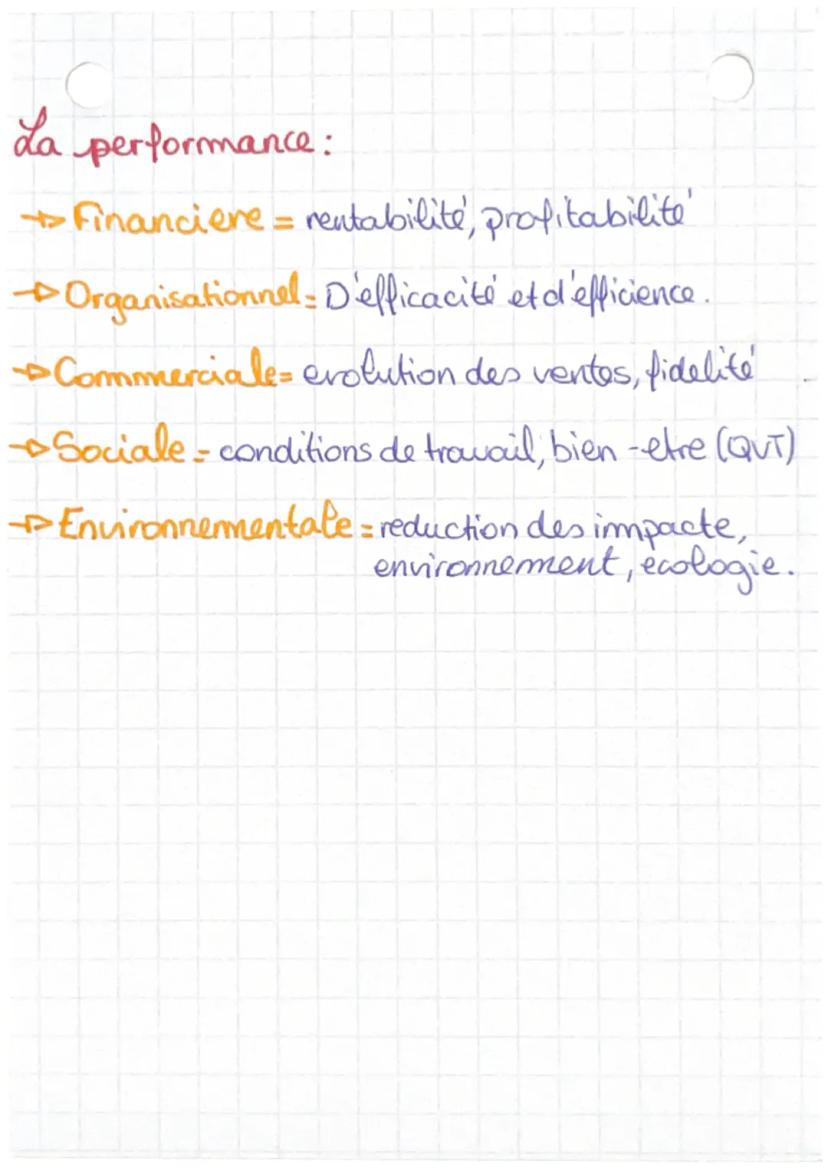 La performance :
→ Financiere = rentabilité, profitabilité
→ Organisationnel = D'efficacité et d'efficience.
→ Commerciale = evolution des ventes, fidelité
→ Sociale = conditions de travail, bien-etre (QVT)
→ Environnementale = reduction des impacte,
environnement, ecologie.